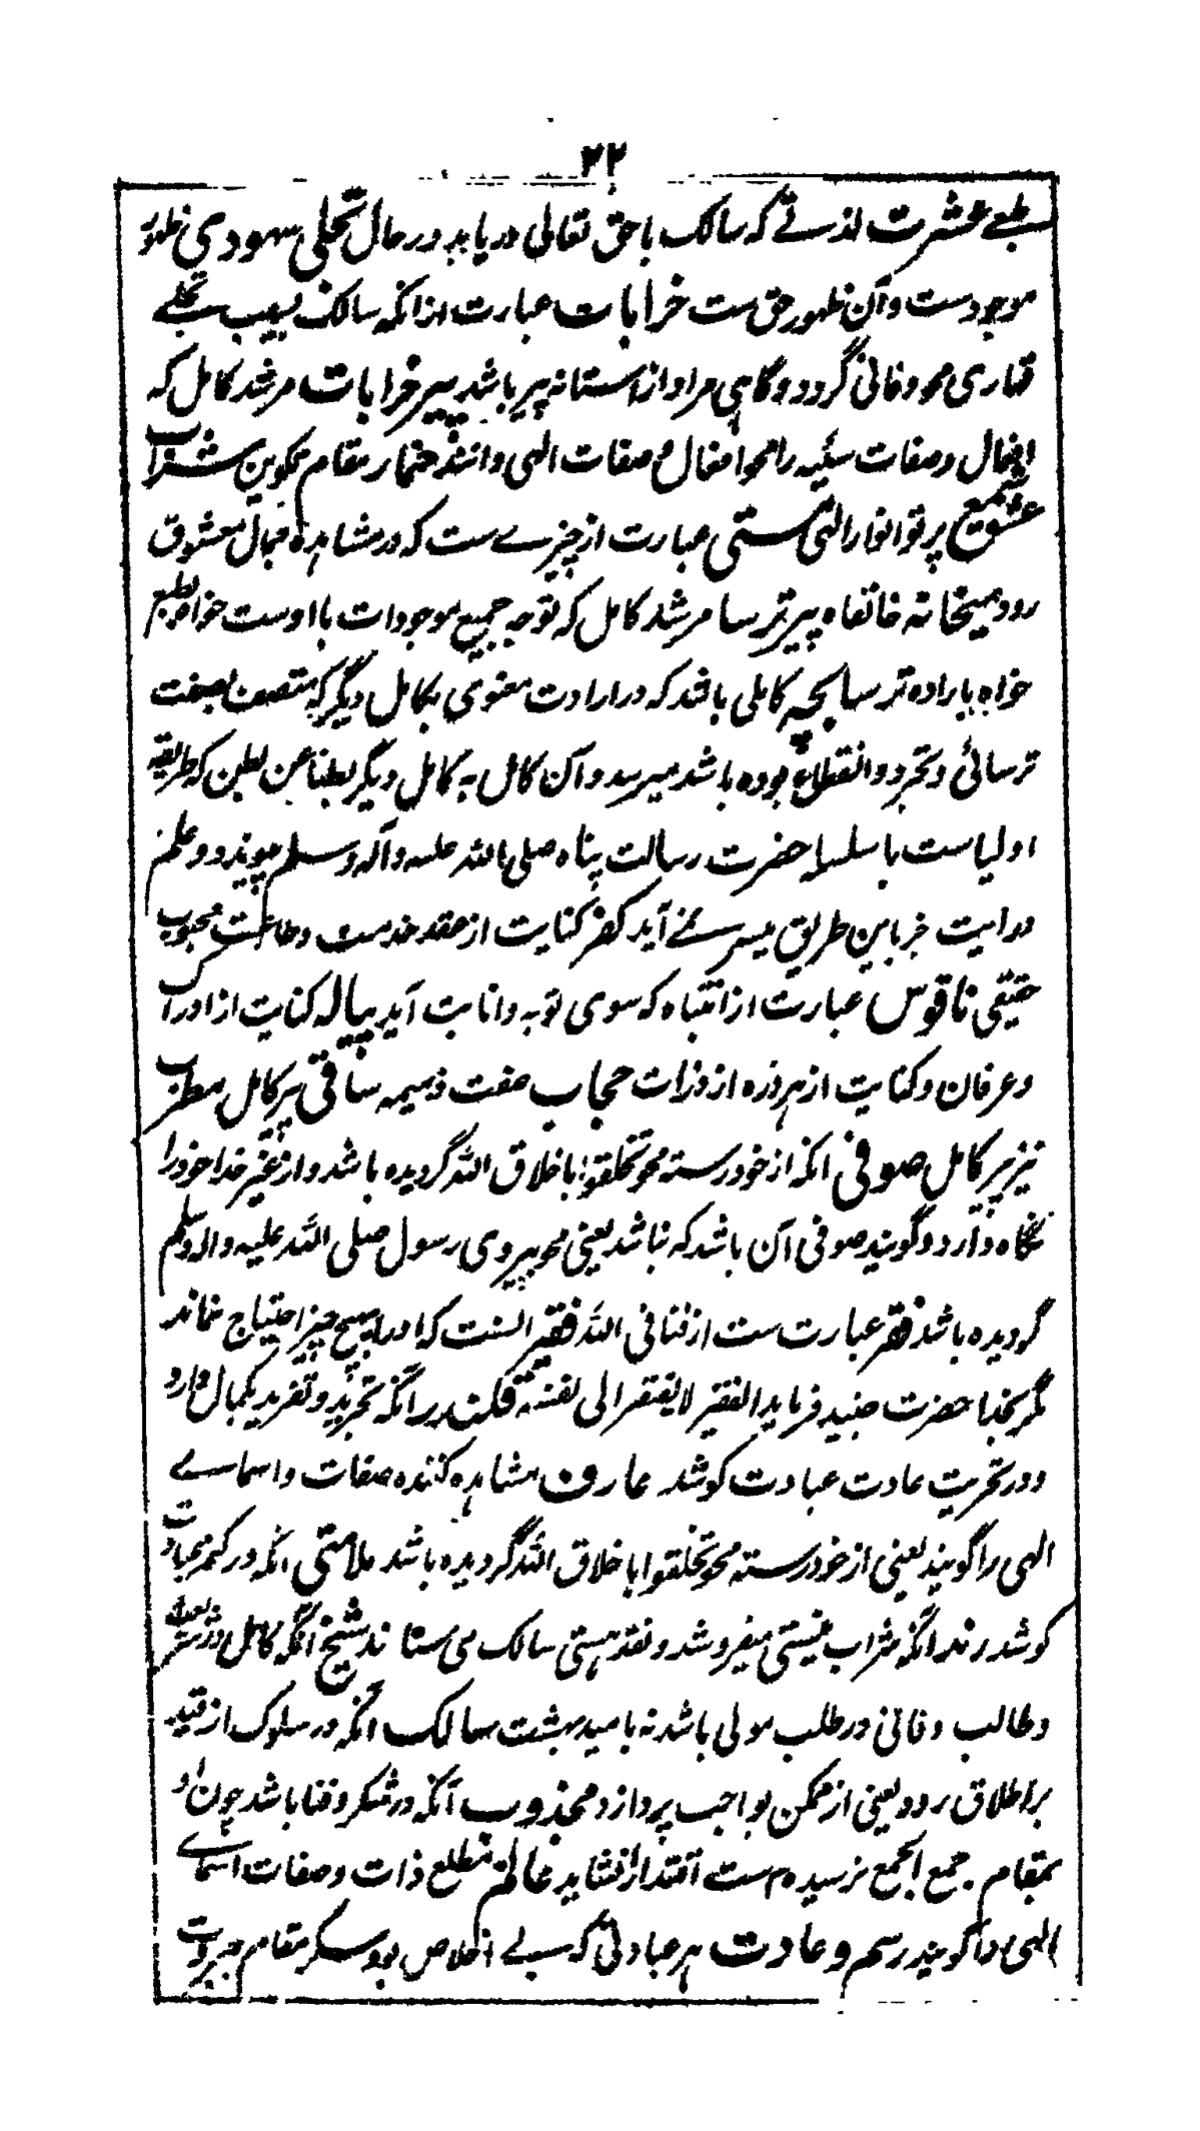 ۳۲
بطبے عشرت لذتے کہ سالک با حق تعالی دریابد در حال تجلی سهودی ظهور
موجودست و آن ظهور حق ست خرابات عبارت ازانکہ سالک بسبب تجلے
قهاری محو و فانی گردد و گاهی مراد از استانہ پیر باشد پیر خرابات مرشد کامل کہ
افعال و صفات سئیہ را محو افعال و صفات الهی دانند خمار مقام تکوین شراب
عشق شمع پرتو انوار الهی مستی عبارت از چیزے ست کہ در مشاهدہ جمال معشوق
رود میخانہ خانقاہ پیر ترسا مرشد کامل کہ توجہ جمیع موجودات با اوست خواہ بطبع
خواہ بارادہ ترسا بچہ کاملی باشد کہ در ارادت معنوی بکامل دیگر کہ متصف بصفت
ترسائی و تجرد و انقطاع بودہ باشد میرسد و آن کامل بہ کامل دیگر بطنا عن بطن کہ طریقہ
اولیاست با سلسلہ حضرت رسالت پناہ صلی اللہ علیہ وآلہ وسلم میپیوندد و علم
ورایت جز باین طریق میسر نمے آید کفر کنایت از عقد خدمت و طاعت محبوب
حقیقی ناقوس عبارت از انتباہ کہ سوی توبہ و انابت آید پیالہ کنایت از ادراک
و عرفان و کنایت از هر ذرہ از ذرات حجاب صفت ذمیمہ ساقی پیر کامل مطرب
نیز پیر کامل صوفی انکہ از خود رستہ محو تخلقوا باخلاق اللہ گردیدہ باشد و از غیر خدا خود را
نگاہ دارد و گویند صوفی آن باشد کہ نباشد یعنی محو پیروی رسول صلی اللہ علیہ والہ وسلم
گردیدہ باشد فقر عبارت ست از فنا فی اللہ فقیر انست کہ او را بهیچ چیز احتیاج نماند
مگر بخدا حضرت جنید فرماید الفقیر لا یفتقر الی نفسہ قلندر انکہ تجرید و تفرید بکمال دارد
و در تخریب عادت عبادت کوشد عارف مشاهدہ کنندہ صفات و اسماے
الهی را گویند یعنی از خود رستہ محو تخلقوا باخلاق اللہ گردیدہ باشد ملامتی انکہ در کتم عبادت
کوشد رند انکہ شراب نیستی میفروشد و نقد هستی سالک می ستاند شیخ انکہ کامل در شریعت
و طالب و فانی در طلب مولی باشد نہ بامید بهشت سالک انکہ در سلوک از قید
بر اطلاق رود یعنی از ممکن بواجب پردازد مجذوب آنکہ در شکر و فنا باشد چون او
بمقام جمع الجمع نرسیدہ ست اقتدا را نشاید عالم مطلع ذات و صفات اسماے
الهی را گویند رسم و عادت هر عبادتی کہ بے اخلاص بود سکر مقام جبروت